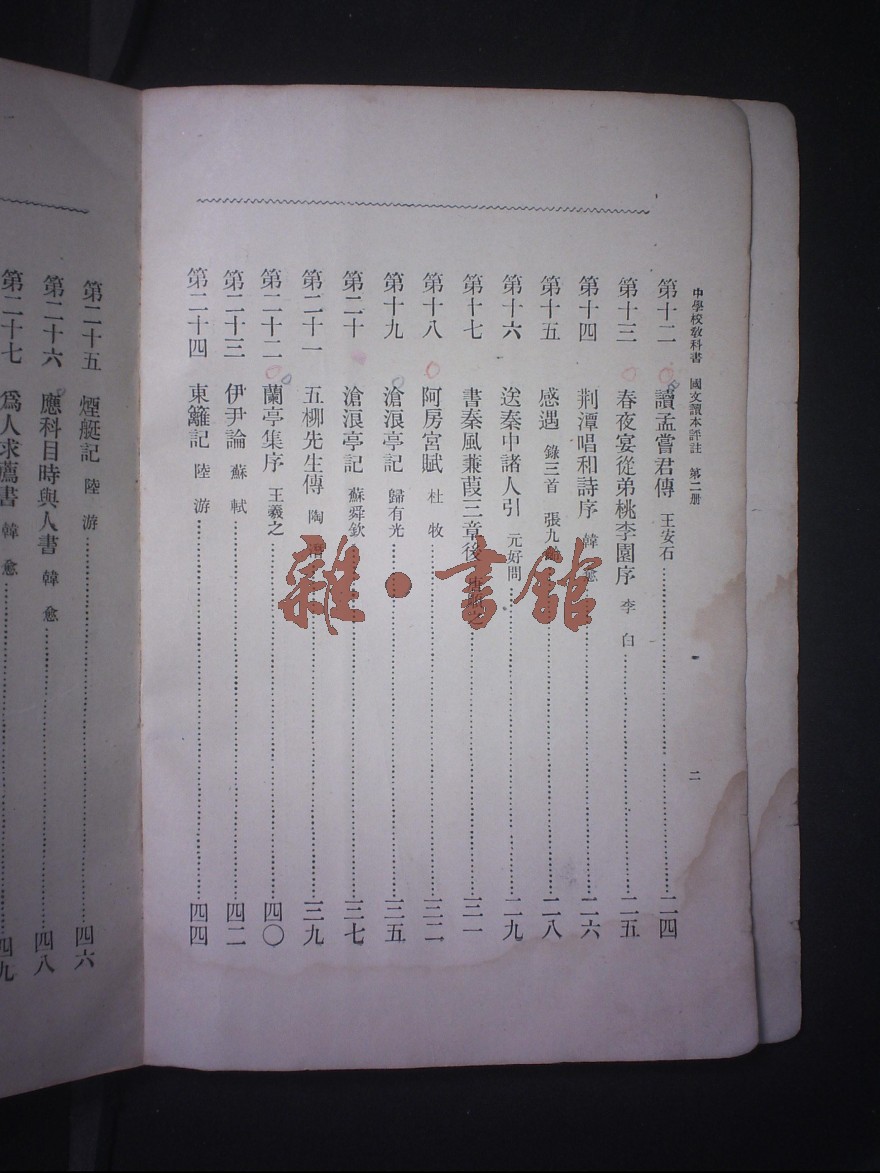 中學校敎科書 國文讀本評註 第二册 二
第十二 讀孟嘗君傳 王安石 二四
第十三 春夜宴從弟桃李園序 李白 二五
第十四 荆潭唱和詩序 韓愈 二六
第十五 感遇 錄三首 張九齡 二八
第十六 送秦中諸人引 元好問 二九
第十七 書秦風蒹葭三章後 三一
第十八 阿房宮賦 杜牧 三二
第十九 滄浪亭記 歸有光 三五
第二十 滄浪亭記 蘇舜欽 三七
第二十一 五柳先生傳 陶潛 三九
第二十二 蘭亭集序 王羲之 四〇
第二十三 伊尹論 蘇軾 四二
第二十四 東籬記 陸游 四四
第二十五 煙艇記 陸游 四六
第二十六 應科目時與人書 韓愈 四八
第二十七 爲人求薦書 韓愈 四九
雜·書館